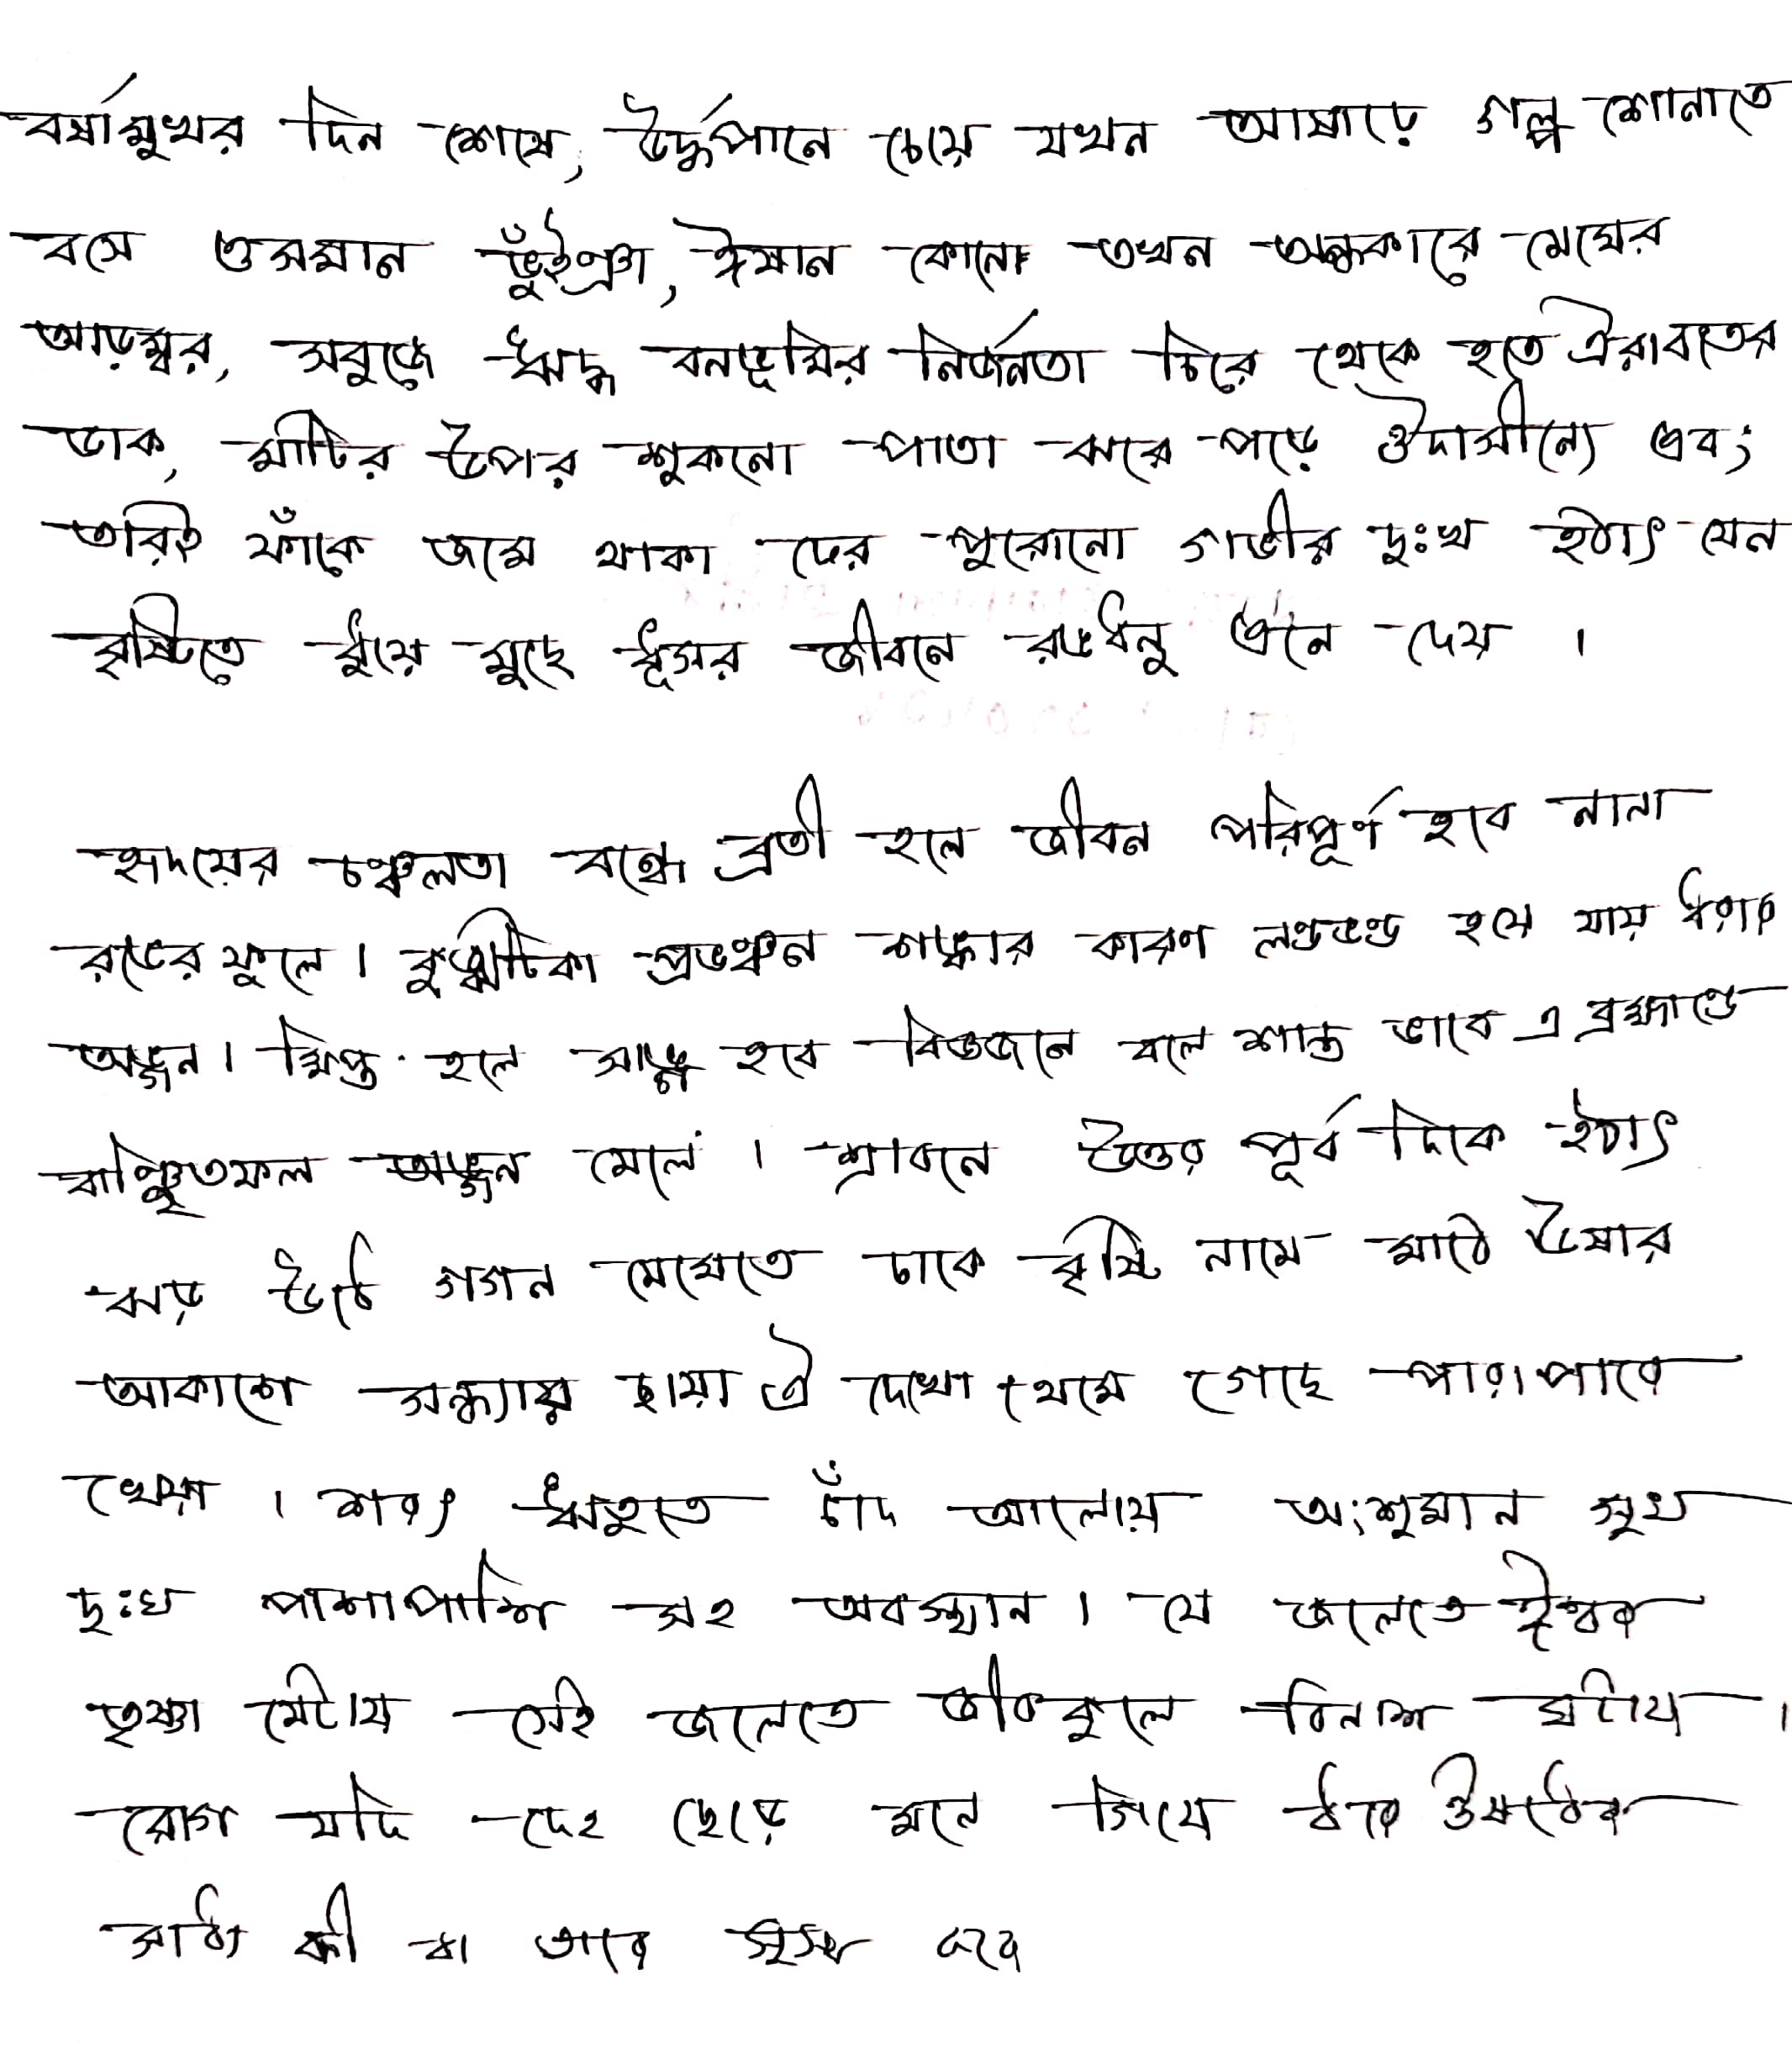 বর্ষামুখর দিন শেষে, উর্দ্ধপানে চেয়ে যখন আষাঢ়ে গল্প শোনাতে
বসে ওসমান ভুঁইঞা, ঈষান কোনে তখন অন্ধকারে মেঘের
আড়ম্বর, সবুজে ঋদ্ধ বনভূমির নির্জনতা চিরে থেকে হতে ঐরাবতের
ডাক, মাটির উপর শুকনো পাতা ঝরে পড়ে ঔদাসীন্যে এবং
তারই ফাঁকে জমে থাকা ঢের পুরোনো গভীর দুঃখ হঠাৎ যেন
বৃষ্টিতে ধুয়ে মুছে ধূসর জীবনে রঙধনু এনে দেয় ।
হৃদয়ের চঞ্চলতা বন্ধে ব্রতী হলে জীবন পরিপূর্ণ হবে নানা
রঙের ফুলে । কুজ্ঝটিকা প্রভঞ্জন শঙ্কার কারণ লণ্ডভণ্ড হয়ে যায় ধরার
অঙ্গন । ক্ষিপ্ত হলে সাঙ্গ হবে বিজ্ঞজনে বলে শান্ত ভাবে এ ব্রহ্মাণ্ডে
বাঞ্ছিতফল অঙ্গন মেলে । শ্রাবনে উত্তর পূর্ব দিকে হঠাৎ
ঝড় উঠে গগন মেঘেতে ঢাকে বৃষ্টি নামে মাঠে ঊষার
আকাশে সন্ধ্যায় ছায়া ঐ দেখো থেমে গেছে পারাপারে
খেয়া । শরৎ ঋতুতে চাঁদ আলোয় অংশুমান সুখ
দুঃখ পাশাপাশি সহ অবস্থান । যে জলেতে ঈশ্বর
তৃষ্ণা মেটায় সেই জলেতে জীবকুলে বিনাশ ঘটায় ।
রোগ যদি দেহ ছেড়ে মনে গিয়ে ধরে ঔষধের
সাধ্য কী বা তারে সুস্থ করে